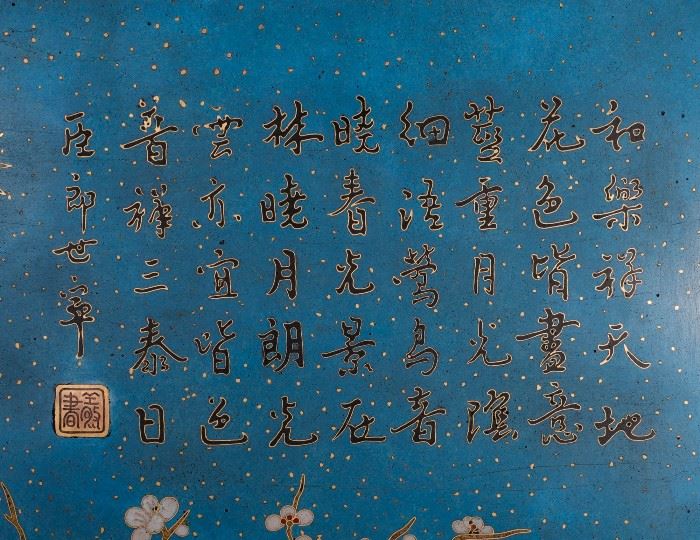 和樂祥天地
花色皆畫意
藍重月光濱
細語鶯鳥音
曉春光景在
林曉月朗光
雲亦宜皆色
普祥三泰日
臣郎世寧